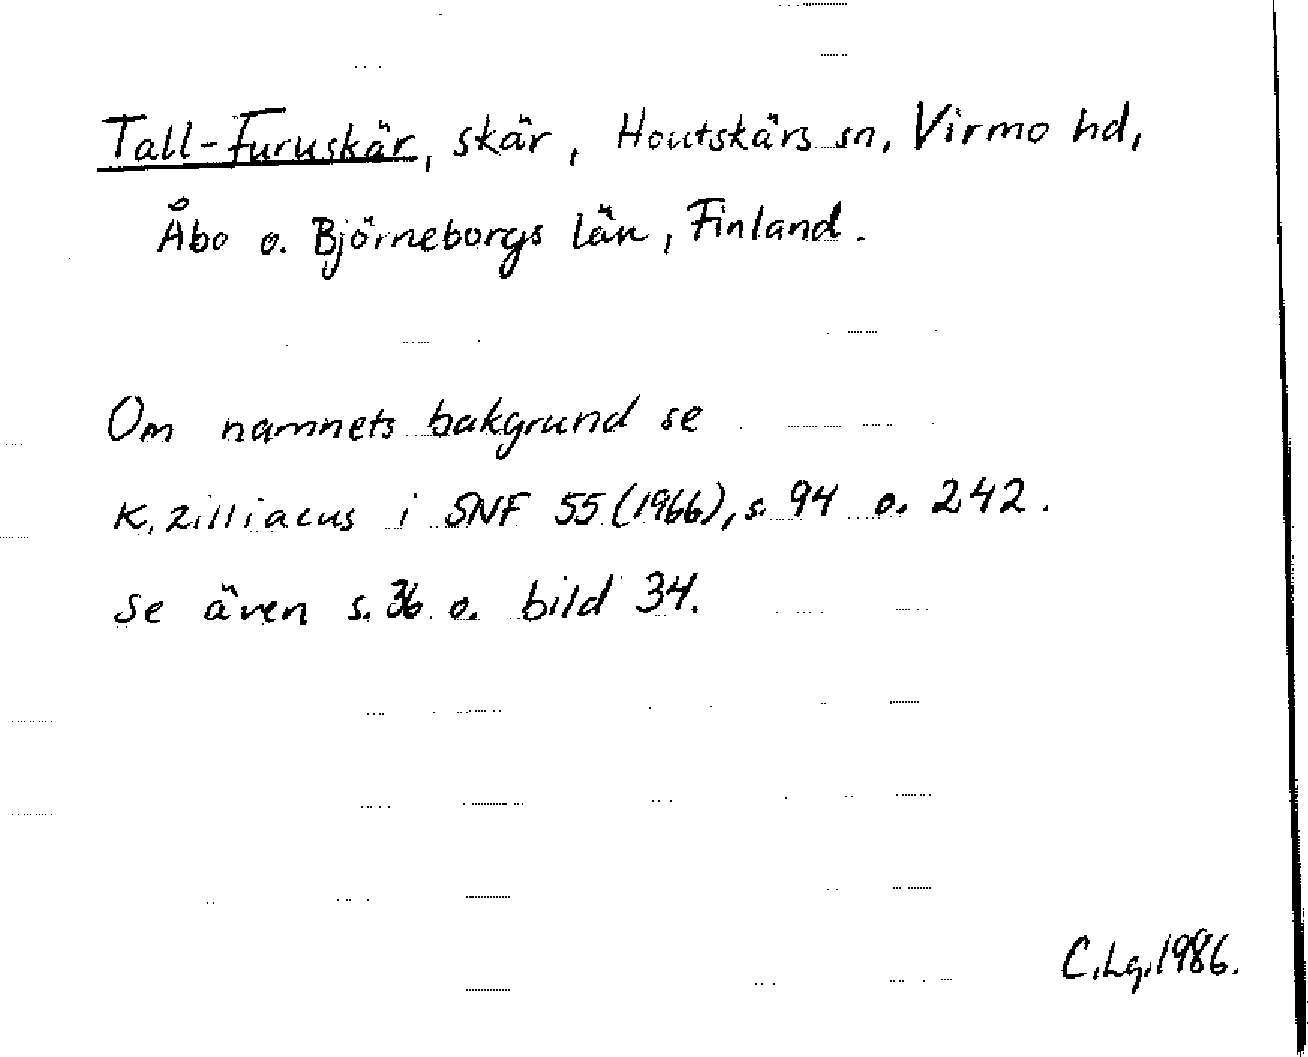 Tall-Furuskär, skär, Houtskärs sn, Virmo hd,
Åbo o. Björneborgs län, Finland.
Om namnets bakgrund se
K. Zilliacus i SNF 55 (1966), s. 94 o. 242.
Se även s. 36 o. bild 34.
C. Lg. 1986.